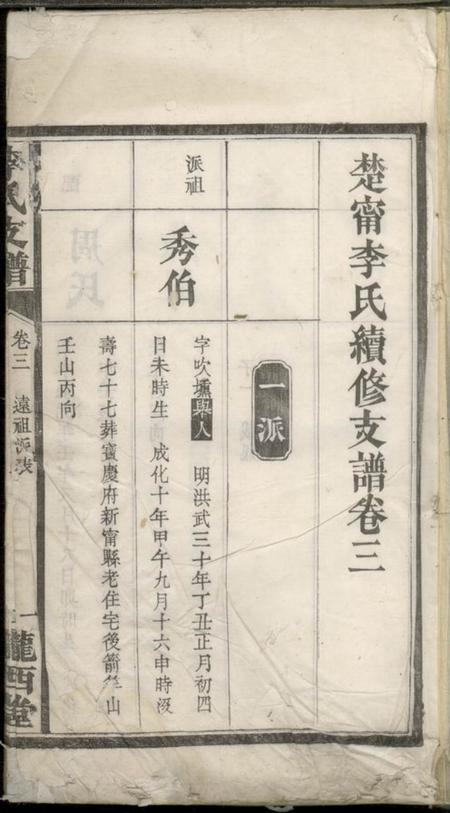 楚甯李氏續修支譜卷三
一派
派祖
秀伯
字吹壎舉人 明洪武三十年丁丑正月初四
日未時生 成化十年甲午九月十六申時歿
壽七十七葬寶慶府新甯縣老住宅後箭竿山
壬山丙向
李氏支譜
卷三 遠祖派表
一
隴西堂